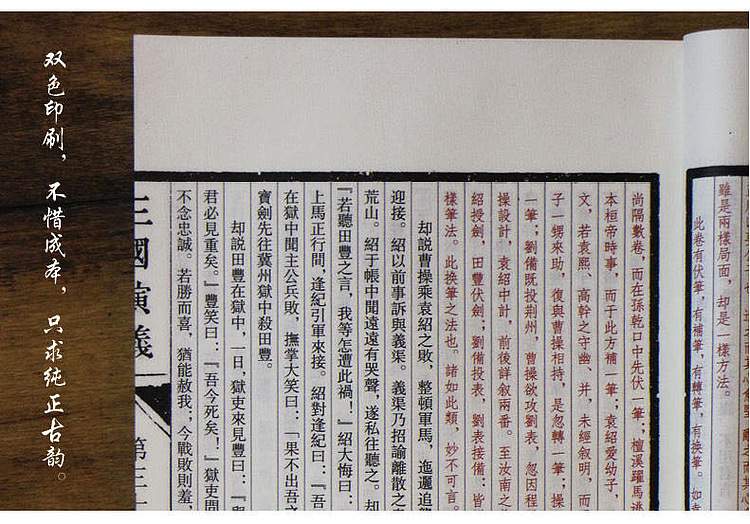 双色印刷，不惜成本，只求纯正古韵。
雖是兩樣局面，却是一樣方法。
此卷有伏筆，有補筆，有轉筆，有換筆。如袁
尚陽數卷，而在孫乾口中先伏一筆；檀溪躍馬逃
本桓帝時事，而于此方補一筆；袁紹愛幼子，
文，若袁熙、高幹之守幽、并，未經叙明，而
子一甥來助，復與曹操相持，是忽轉一筆；操
一筆；劉備既投荆州，曹操欲攻劉表，忽因程
操設計，袁紹中計，前後詳叙兩番。至汝南之
紹授劍，田豐伏劍；劉備投表，劉表接備：皆
樣筆法。此換筆之法也。諸如此類，妙不可言。
却説曹操乘袁紹之敗，整頓軍馬，迤邐追
迎接。紹以前事訴與義渠。義渠乃招諭離散之
荒山。紹于帳中聞遠遠有哭聲，遂私往聽之。却
『若聽田豐之言，我等怎遭此禍！』紹大悔曰：
上馬正行間，逢紀引軍來接。紹對逢紀曰：『吾
在獄中聞主公兵敗，撫掌大笑曰：『果不出吾之
寶劍先往冀州獄中殺田豐。
却説田豐在獄中，一日，獄吏來見豐曰：『與
君必見重矣。』豐笑曰：『吾今死矣！』獄吏問
不念忠誠。若勝而喜，猶能赦我；今戰敗則羞，
三國演義
第三十